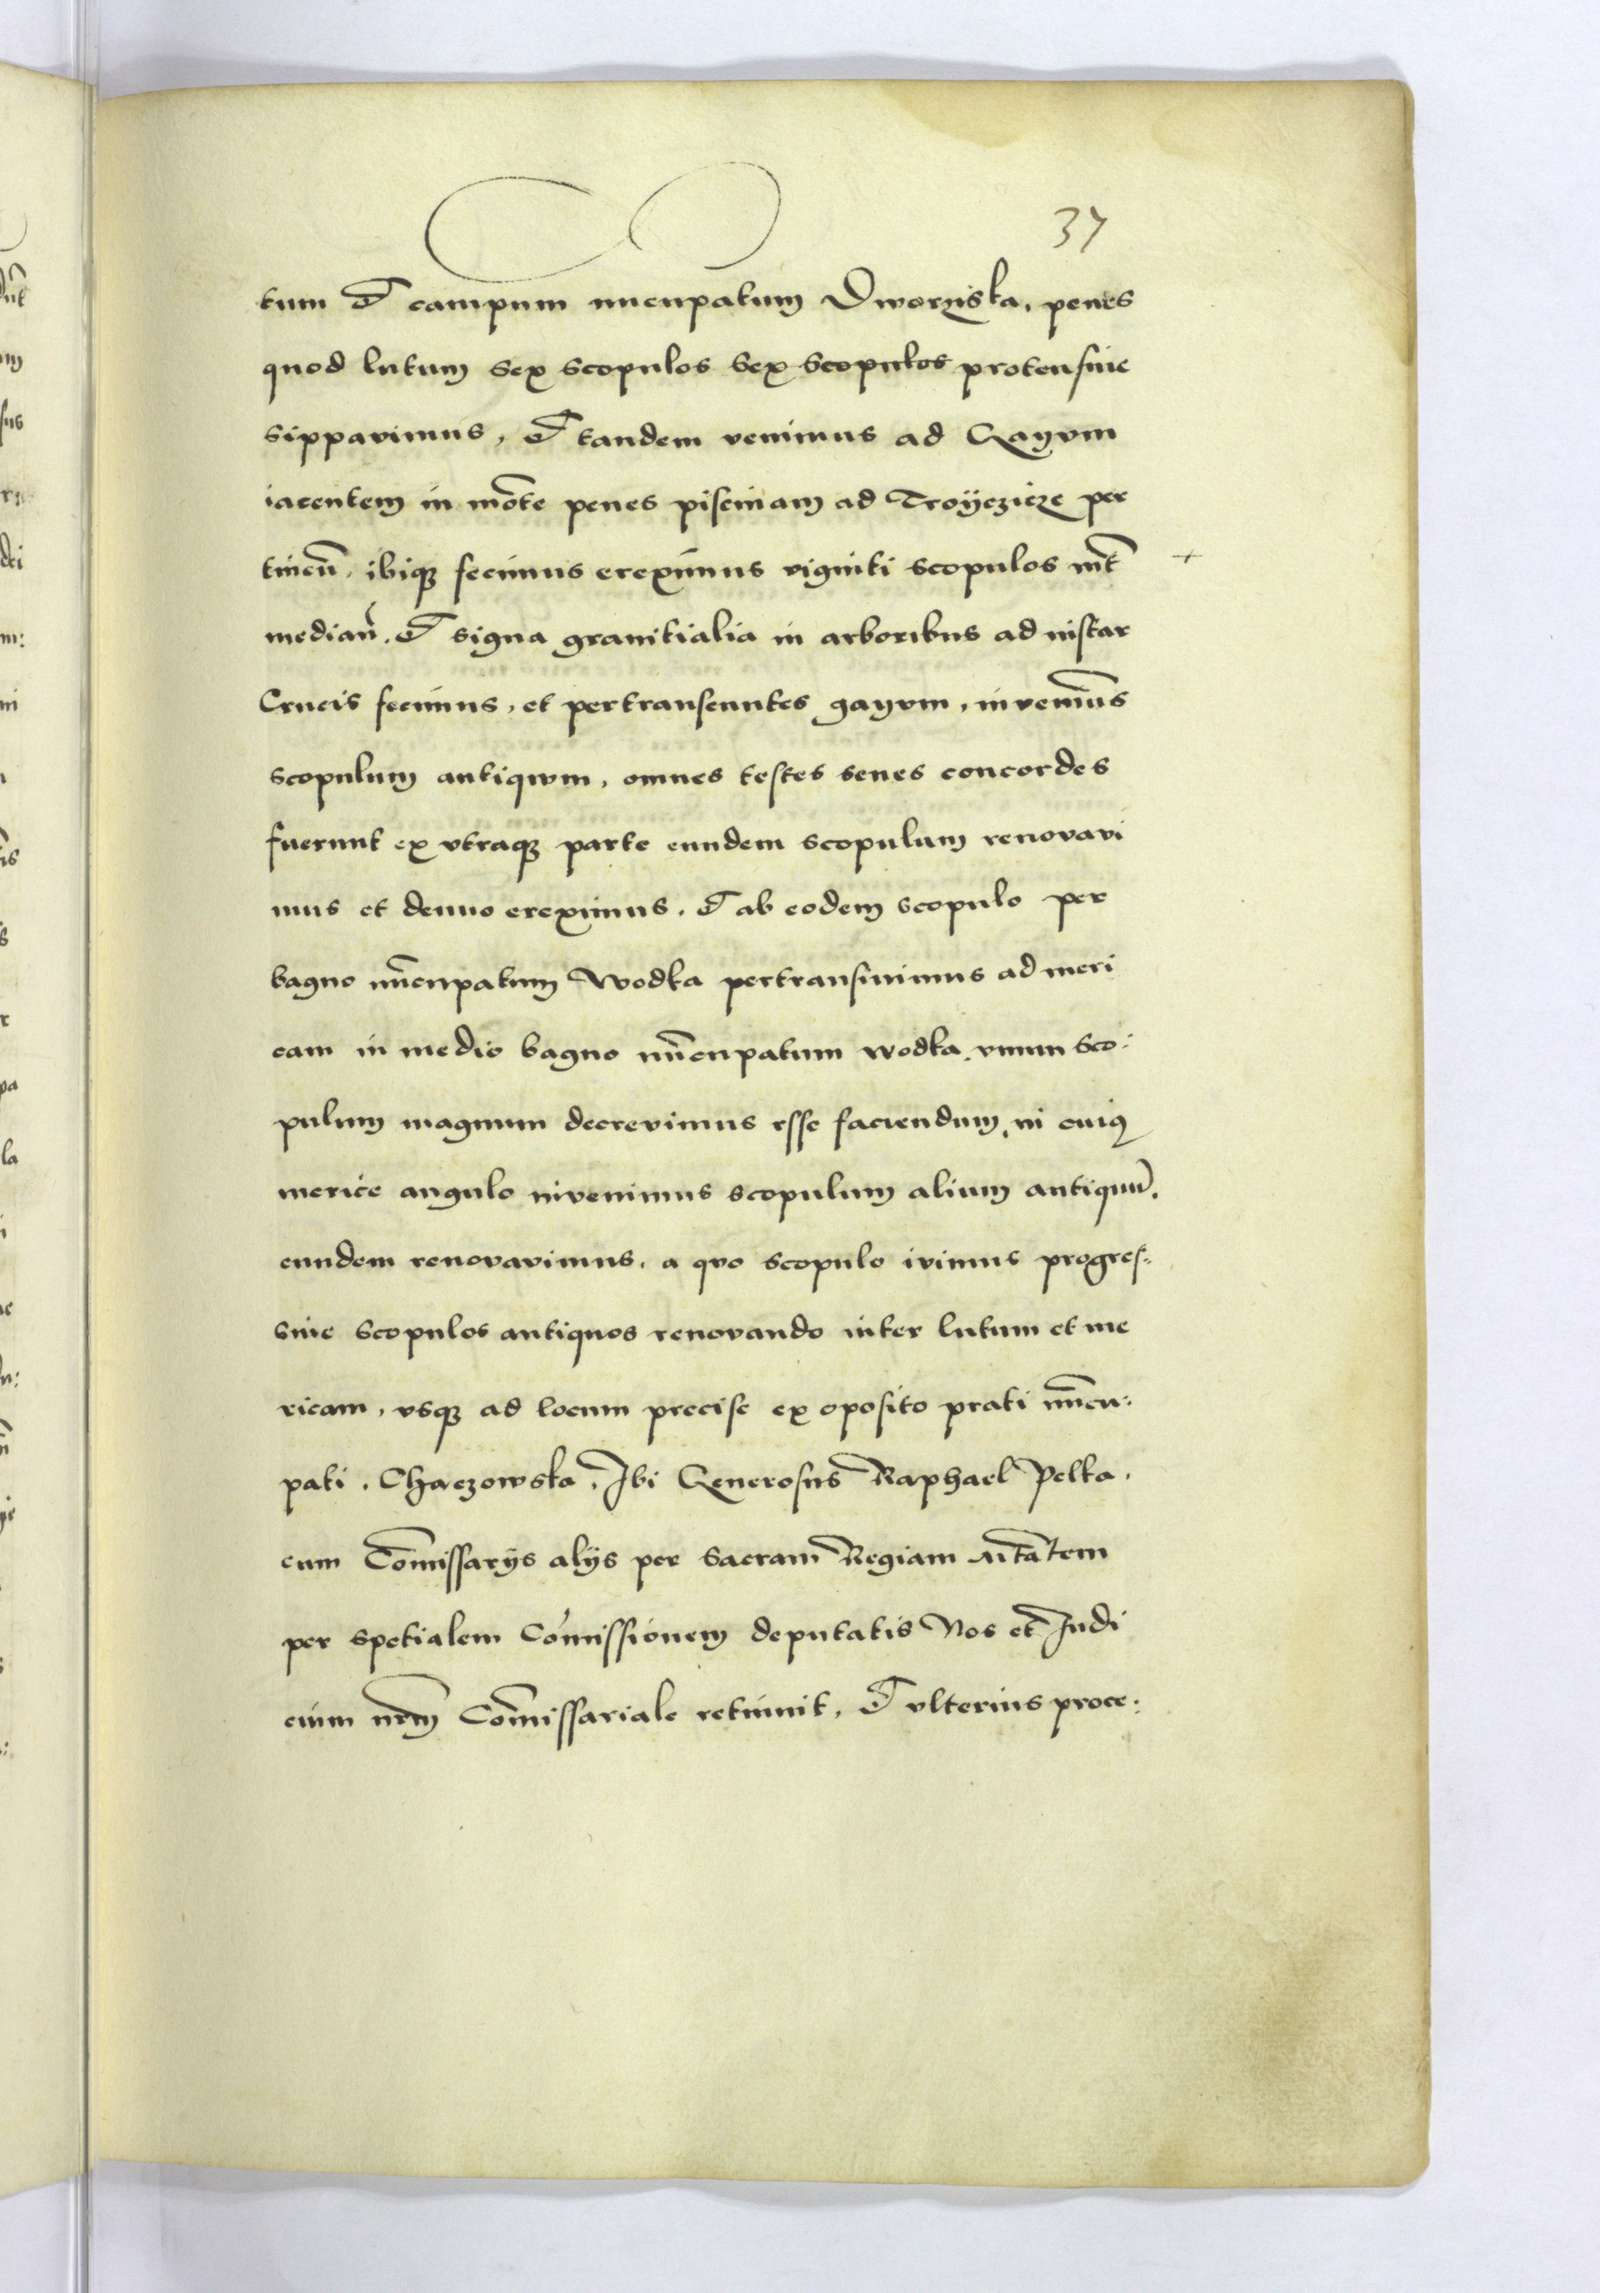 37
tum et campum nuncupatum Dworziska, penes
quod lutum sex scopulos sex scopulos protensive
sippavimus, et tandem venimus ad Gayum
iacentem in mo͞te penes piscinam ad Troyczicze per
tineñ, ibiqꝫ fecimus ereximus viginti scopulos int̃
median̄. et signa granitialia in arboribus ad instar
Crucis fecimus, et pertranseuntes gayum, invenim̃us
scopulum antiqwm, omnes testes senes concordes
fuerunt ex vtraqꝫ parte eundem scopulum renovavi
mus et denuo ereximus. et ab eodem scopulo per
bagno nu͞cupatum Wodka pertransivimus ad meri
cam in medio bagno nu͞cupatum wodka. vnum sco:
pulum magnum decrevimus esse faciendum, in cuiꝯ
merice angulo invenimus scopulum alium antiquu͂.
eundem renovavimus. a quo scopulo ivimus progres:
sive scopulos antiquos renovando inter lutum et me
ricam, vsqꝫ ad locum precise ex oposito prati nu͞cu:
pati. Chaczowska, Ibi Generosus Raphael Pelka.
cum Co͞missarÿs alÿs per Sacram Regiam M̃tatem
per spetialem Co͞missionem deputatis Nos et Iudi
cium nr̃m Com͞issariale retinuit, et vlterius proce: